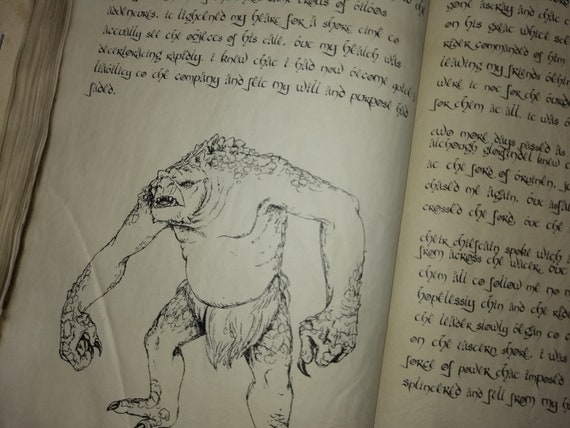 adventures. it lightened my heart for a short time to
actually see the objects of his tale, but my health was
deteriorating rapidly. i knew that i had now become quite a
liability to the company and felt my will and purpose had
faded.
gone astray and that
on his great white
rider commanded of him
leaving my friends
were it not for the
for them at all. it was
two more days passed as
although glorfindel knew
at the ford of
chased me again. but
crossed the ford, but the
their chieftain spoke with
from across the water. but
them all to follow me no
hopelessly thin and the
the leader slowly began to
on the eastern shore. i was
force of power that imposed
splintered and fell from my